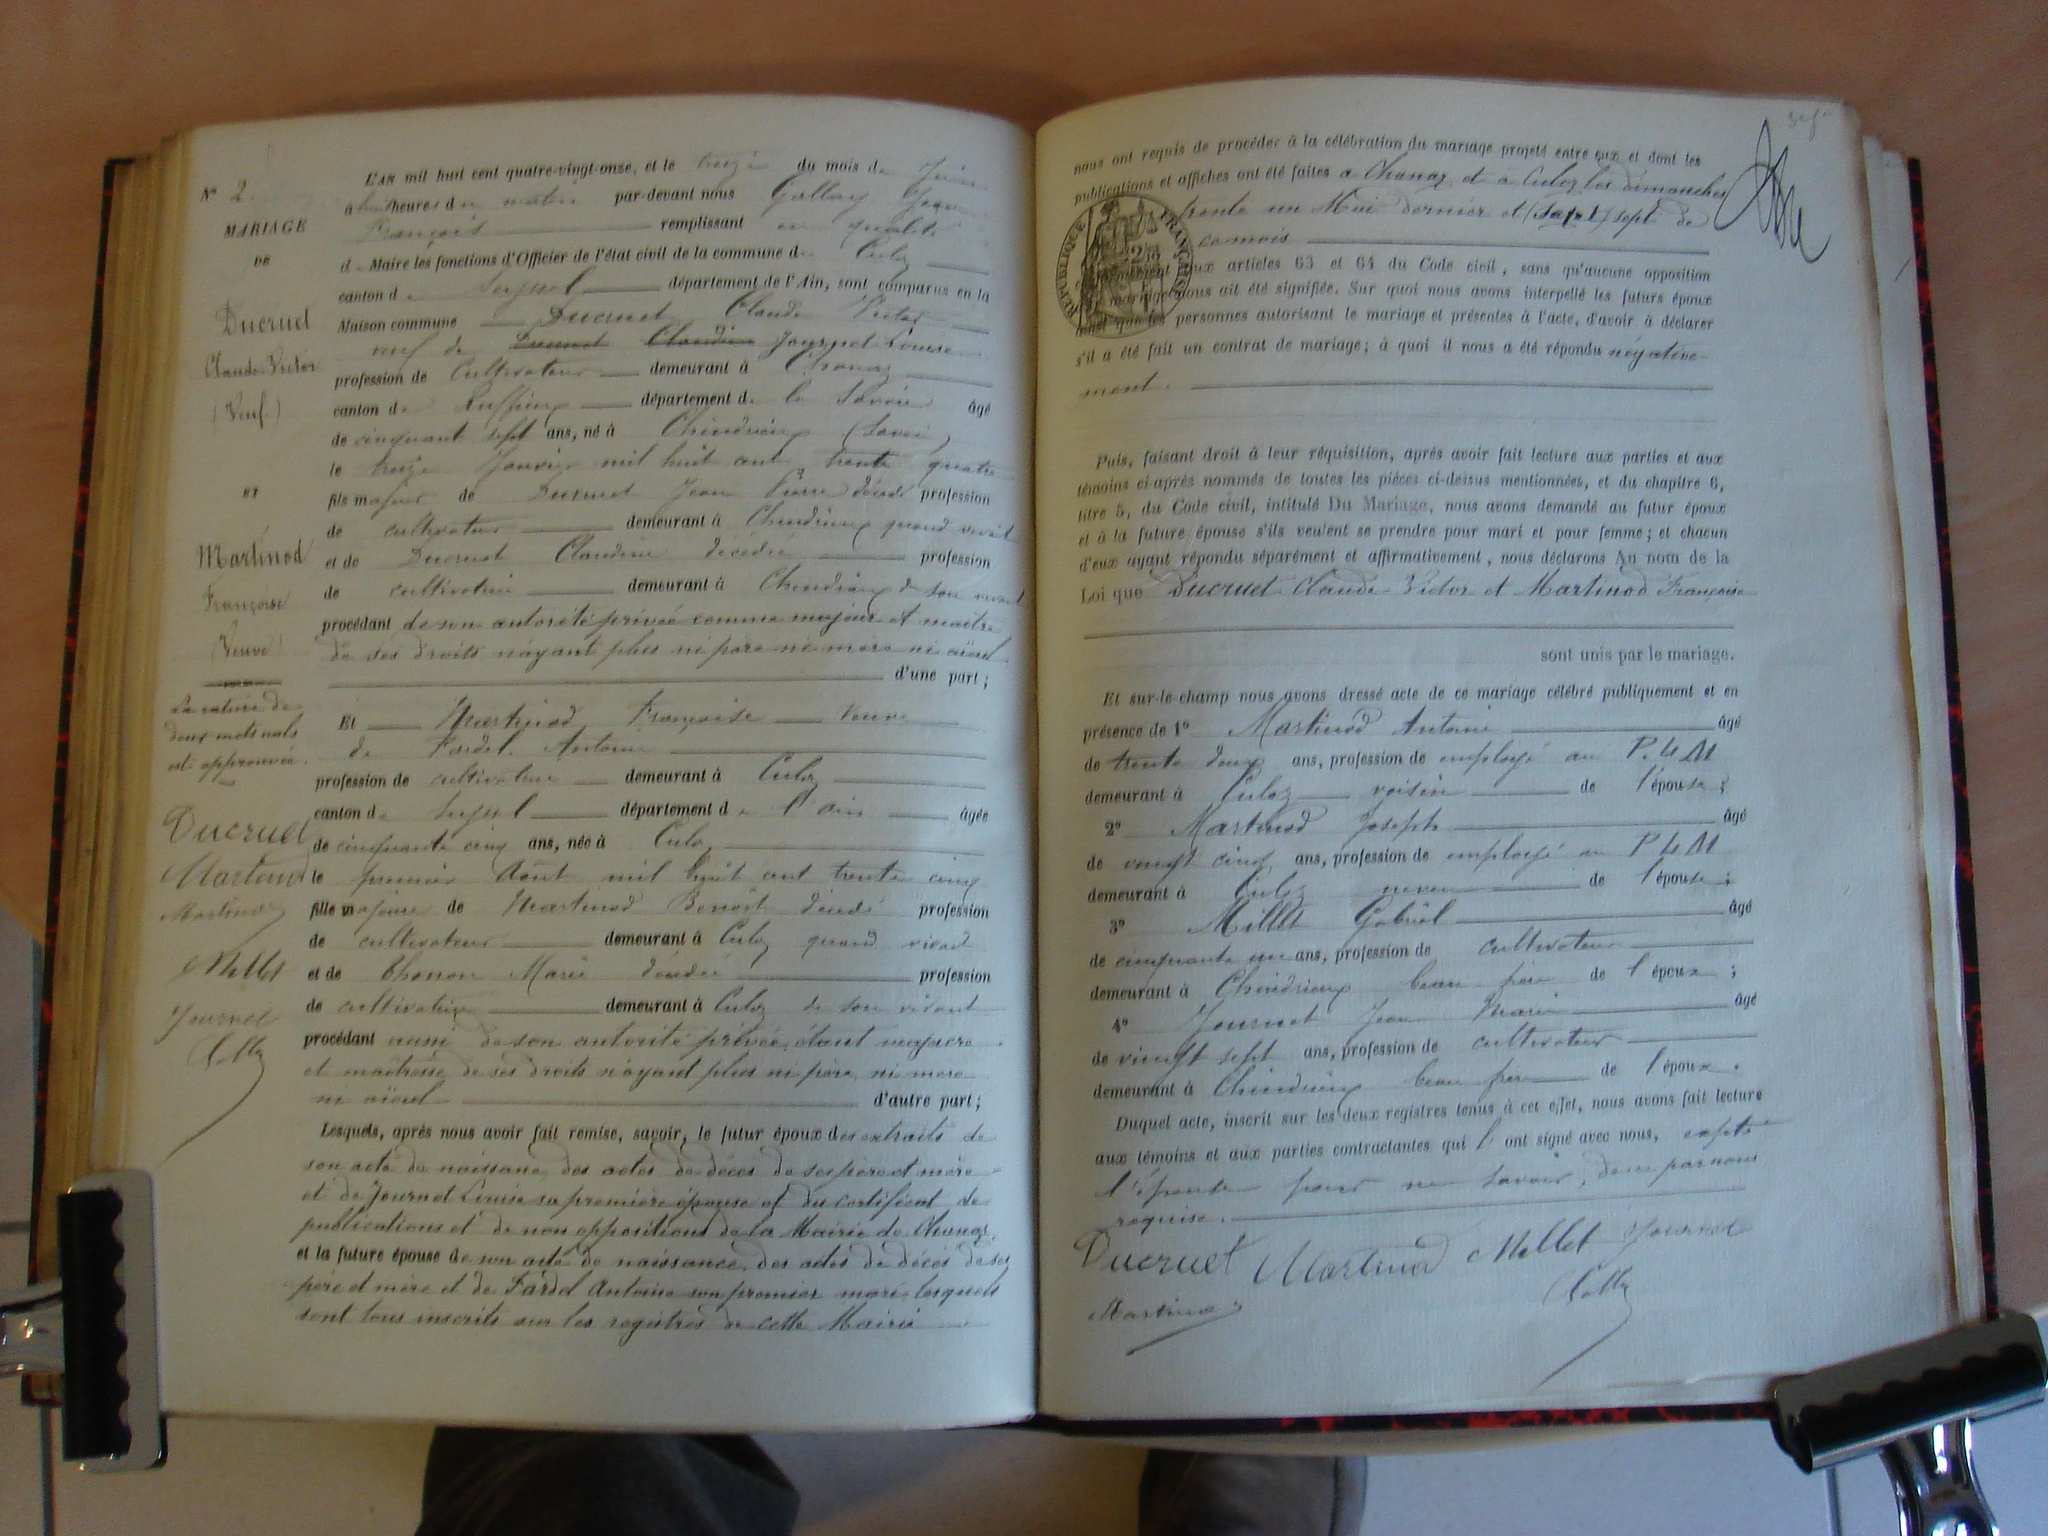 N° 2
MARIAGE
DE
Ducruet
Claude-Victor
(Veuf)
ET
Martinod
Françoise
(Veuve)
La rature de
deux mots nuls
est approuvée.
Ducruet
Martinod
Martinod
Millet
Journet
L'AN mil huit cent quatre-vingt-onze, et le treize du mois de Juin
à huit heures du matin par-devant nous Gallay Jean
François remplissant en qualité
de Maire les fonctions d'Officier de l'état civil de la commune de Culoz
canton de Seyssel département de l'Ain, sont comparus en la
Maison commune Ducruet Claude Victor
veuf de Ducruet Claudine Journet Louise
profession de Cultivateur demeurant à Chanaz
canton de Ruffieux département de la Savoie âgé
de cinquant sept ans, né à Chindrieux (Savoie)
le treize Janvier mil huit cent trente quatre
fils majeur de Ducruet Jean Pierre décédé profession
de cultivateur demeurant à Chindrieux quand vivait
et de Ducruet Claudine décédée profession
de cultivatrice demeurant à Chindrieux de son vivant
procédant de son autorité privée comme majeur et maître
de ses droits n'ayant plus ni père ni mère ni aïeul
d'une part;
Et Martinod Françoise Veuve
de Fardel Antoine
profession de cultivateur demeurant à Culoz
canton de Seyssel département de l'Ain âgée
de cinquante cinq ans, née à Culoz
le premier Août mil huit cent trente cinq
fille majeure de Martinod Benoît décédé profession
de cultivateur demeurant à Culoz quand vivait
et de Thonon Marie décédée profession
de cultivatrice demeurant à Culoz de son vivant
procédant aussi de son autorité privée, étant majeure
et maîtresse de ses droits n'ayant plus ni père, ni mère
ni aïeul d'autre part;
Lesquels, après nous avoir fait remise, savoir, le futur époux des extraits de
son acte de naissance, des actes de décès de ses père et mère
et de Journet Louise sa première épouse et du certificat de
publications et de non opposition de la Mairie de Chanaz,
et la future épouse de son acte de naissance, des actes de décès de ses
père et mère et de Fardel Antoine son premier mari, lesquels
sont tous inscrits sur les registres de cette Mairie
nous ont requis de procéder à la célébration du mariage projeté entre eux et dont les
publications et affiches ont été faites à Chanaz et à Culoz les dimanches
trente un Mai dernier et (sept) sept de
ce mois
RÉPUBLIQUE FRANÇAISE
aux articles 63 et 64 du Code civil, sans qu'aucune opposition
mariage nous ait été signifiée. Sur quoi nous avons interpellé les futurs époux
ainsi que les personnes autorisant le mariage et présentes à l'acte, d'avoir à déclarer
s'il a été fait un contrat de mariage; à quoi il nous a été répondu négative-
ment.
Puis, faisant droit à leur réquisition, après avoir fait lecture aux parties et aux
témoins ci-après nommés de toutes les pièces ci-dessus mentionnées, et du chapitre 6,
titre 5, du Code civil, intitulé Du Mariage, nous avons demandé au futur époux
et à la future épouse s'ils veulent se prendre pour mari et pour femme; et chacun
d'eux ayant répondu séparément et affirmativement, nous déclarons Au nom de la
Loi que Ducruet Claude-Victor et Martinod Françoise
sont unis par le mariage.
Et sur-le-champ nous avons dressé acte de ce mariage célébré publiquement et en
présence de 1° Martinod Antoine âgé
de trente deux ans, profession de employé au P.L.M
demeurant à Culoz voisin de l'épouse;
2° Martinod Joseph âgé
de vingt cinq ans, profession de employé au P L M
demeurant à Culoz neveu de l'épouse;
3° Millet Gabriel âgé
de cinquante un ans, profession de cultivateur
demeurant à Chindrieux beau frère de l'époux;
4° Journet Jean Marie âgé
de vingt sept ans, profession de cultivateur
demeurant à Chindrieux beau frère de l'époux.
Duquel acte, inscrit sur les deux registres tenus à cet effet, nous avons fait lecture
aux témoins et aux parties contractantes qui l'ont signé avec nous, excepté
l'épouse pour ne savoir, de ce par nous
requise.
Ducruet Martinod Millet Journet
Martinod